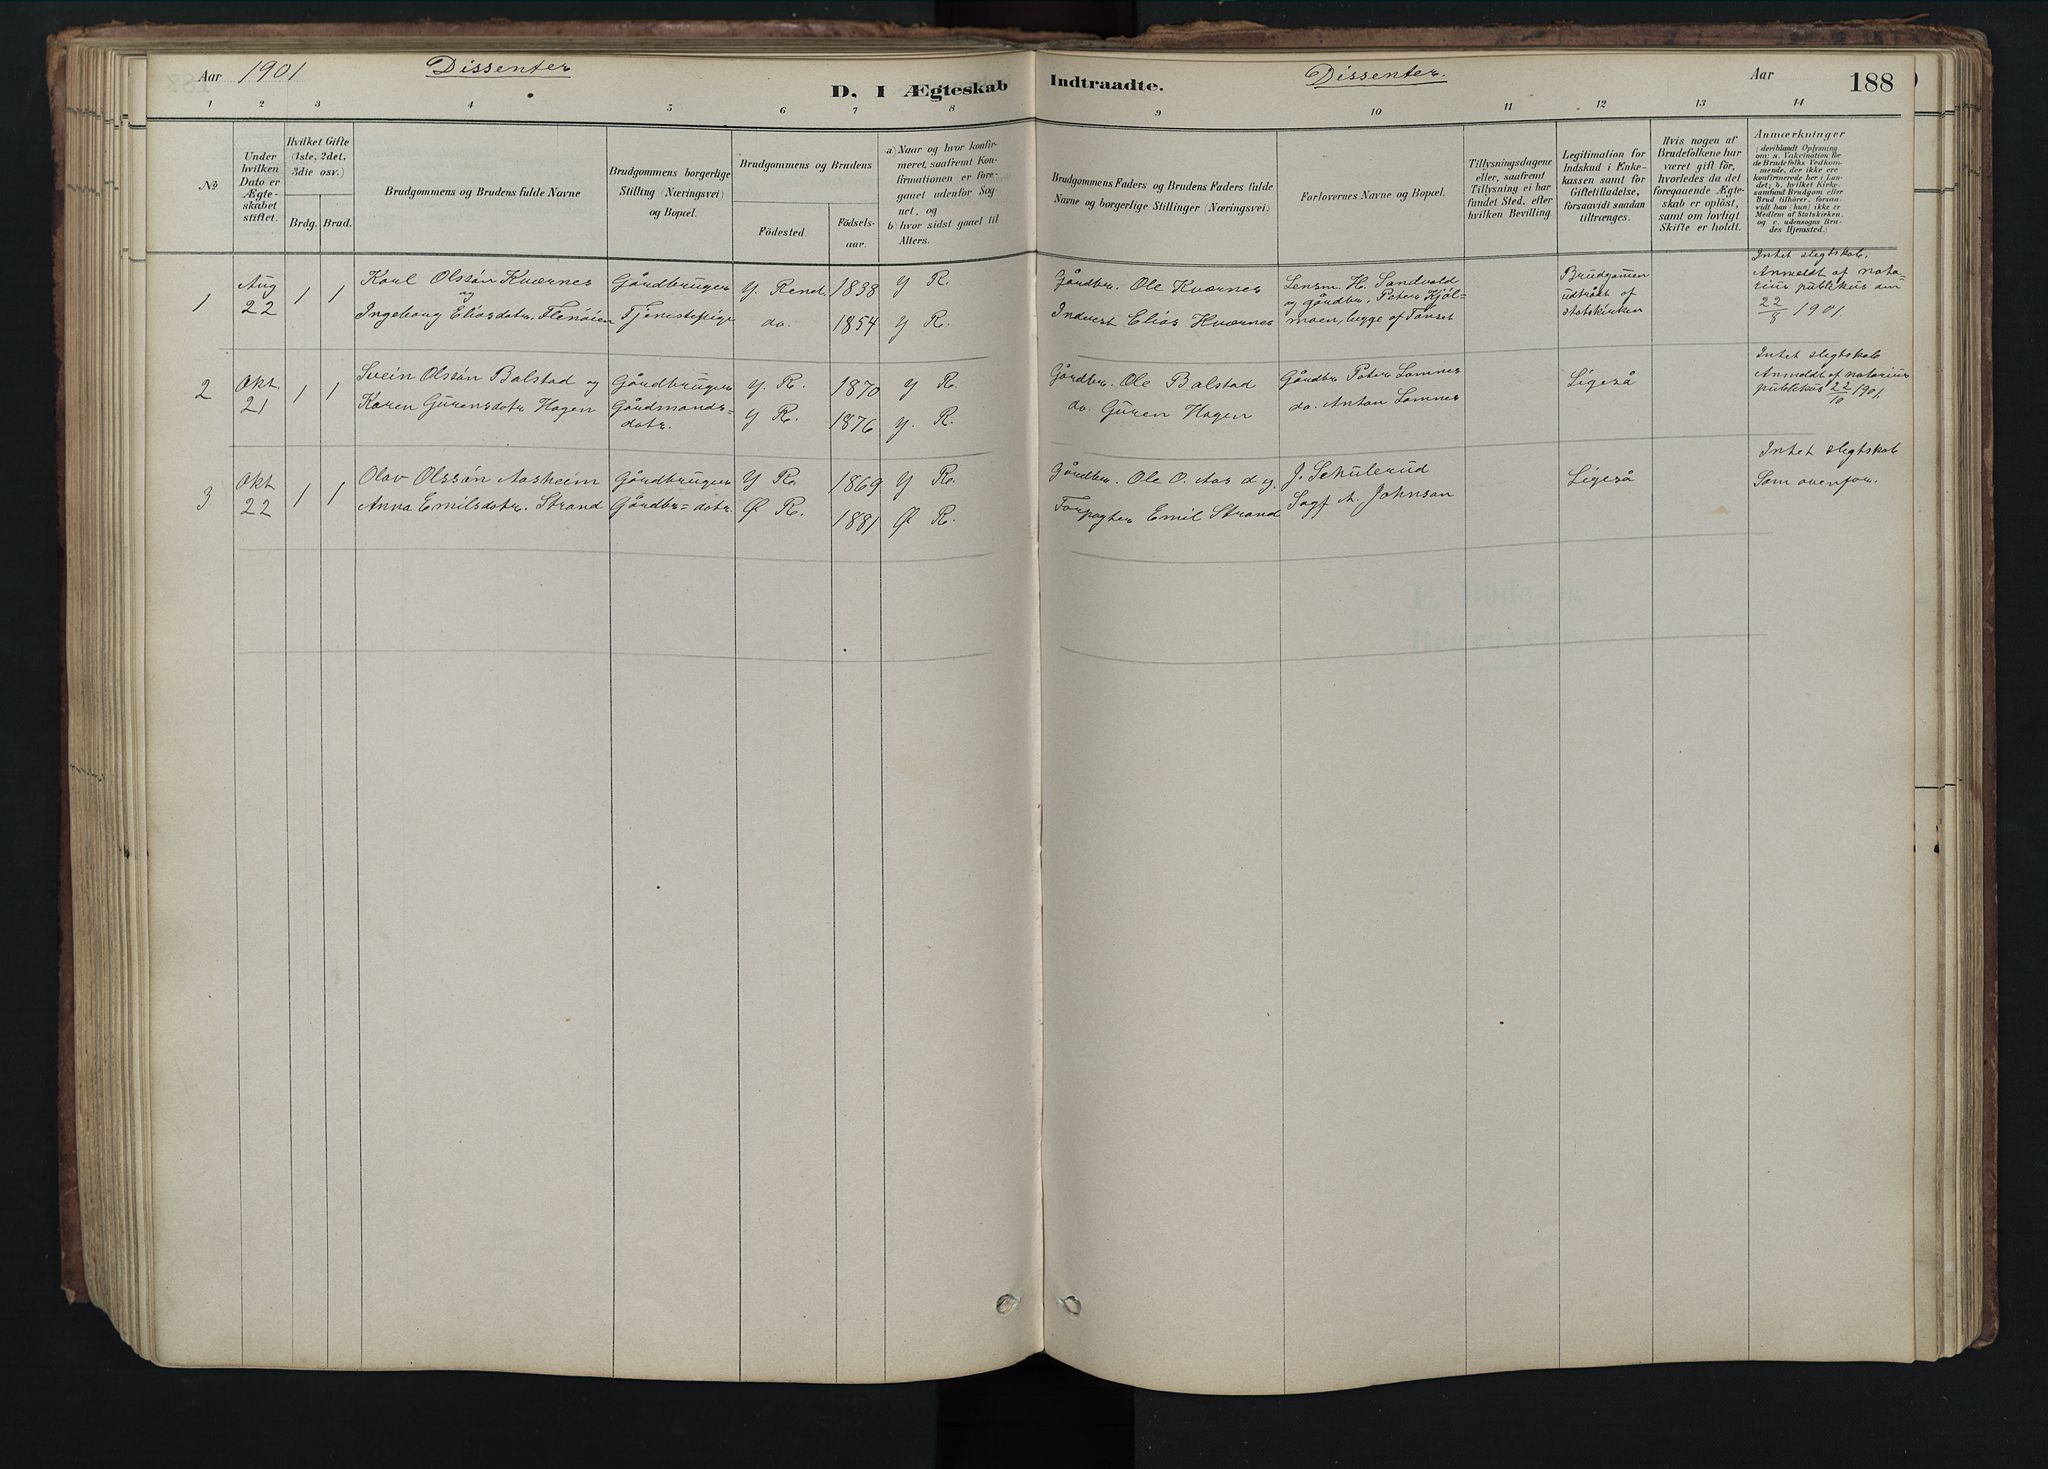 Aar 1901 Dissenter D. I Ægteskab
Indtraadte. Dissenter. Aar 188
1 2 3 4 5 6 7 8
9 10 11 12 13 14
No
Under
hvilken
Dato er
Ægte-
skabet
stiftet.
Hvilket Gifte
(1ste, 2det,
3die osv.)
Brdg. Brud.
Brudgommens og Brudens fulde Navne
Brudgommens borgerlige
Stilling (Næringsvei)
og Bopæl.
Brudgommens og Brudens
Födested.
Födsels-
aar.
a) Naar og hvor konfir-
meret, saafremt Kon-
firmationen er fore-
gaaet udenfor Sog-
net, og
b) hvor sidst gaaet til
Alters.
Brudgommens Faders og Brudens Faders fulde
Navne og borgerlige Stillinger (Næringsvei)
Forlovernes Navne og Bopæl.
Tillysningsdagene
eller, saafremt
Tillysning ei har
fundet Sted, efter
hvilken Bevilling.
Legitimation for
Indskud i Enke-
kassen samt for
Giftetilladelse,
forsaavidt saadan
tiltrænges.
Hvis nogen af
Brudefolkene har
været gift för,
hvorledes da det
foregaaende Ægte-
skab er oplöst,
samt om lovligt
Skifte er holdt.
Anmærkninger
(deriblandt Oplysning
om: a. Vakcination for
de Brudefolks Vedkom-
mende, der ikke ere
konfirmerede her i Lan-
det; b. hvilket Kirke-
samfund Brudgom eller
Brud tilhörer, forsaa-
vidt han (hun) ikke er
Medlem af Statskirken,
og c. udensogns Bru-
des Hjemsted.)
1 Aug 22 1 1
Karl Olssön Kværnes
og
Ingeborg Eliasdatr. Flenöien
Gårdbruger
Tjenestepige
Y. Rend. 1838 Y R.
do. 1854 Y R.
Gårdbr. Ole Kværnes
Inderst Elias Kværnes
Lensm. H. Sandvold
og gårdbr. Peter Kjöl-
moen, begge af Tönset
Brudgommen
udtrådt af
statskirken
Intet slegtskab.
Anmeldt af nota-
rius publikus den
22/8 1901.
2 Okt 21 1 1
Svein Olssön Balstad og
Karen Gurensdatr Hagen
Gårdbruger
Gårdmands-
datr.
Y. R. 1870 Y R.
Y R. 1876 Y. R.
Gårdbr. Ole Balstad
do. Guren Hagen
Gårdbr Peter Lomnes
do. Anton Lomnes
Ligeså
Intet slegtskab
Anmeldt af notarius
publikus 22/10 1901.
3 Okt 22 1 1
Olav Olssön Aasheim
Anna Emilsdatr. Strand
Gårdbruger
Gårdbr= datr.
Y R. 1869 Y R.
Ø R. 1881 Ø R.
Gårdbr. Ole O. Aas d. y.
Forpagter Emil Strand
J. Schulerud
Sagf A. Johnsen
Ligeså
Intet slegtskab
Som ovenfor.